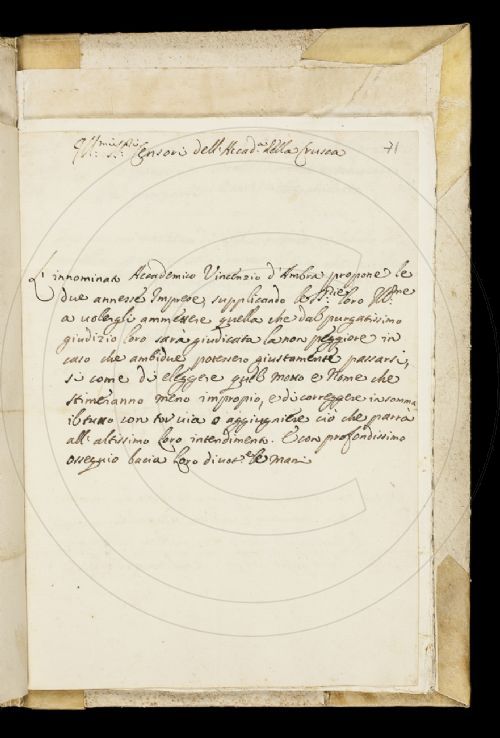 Ill.mi Sig.ri Censori dell'Accad.a della Crusca
71
L'innominata Accademico Vincenzio d'Ambra propone le
due annesse Imprese, supplicando le SS.rie loro Ill.me
a volergli ammettere quella che dal purgatissimo
giudizio loro sarà giudicata la non peggiore in
caso che ambidue potessero giustamente passarsi,
si come di eleggere quel Motto e Nome che
stimeranno meno impropio, e di correggere in somma
il tutto con tor via o aggiugniere ciò che parrà
all'altissimo loro intendimento. E con profondissimo
ossequio bacia loro divot.e le mani